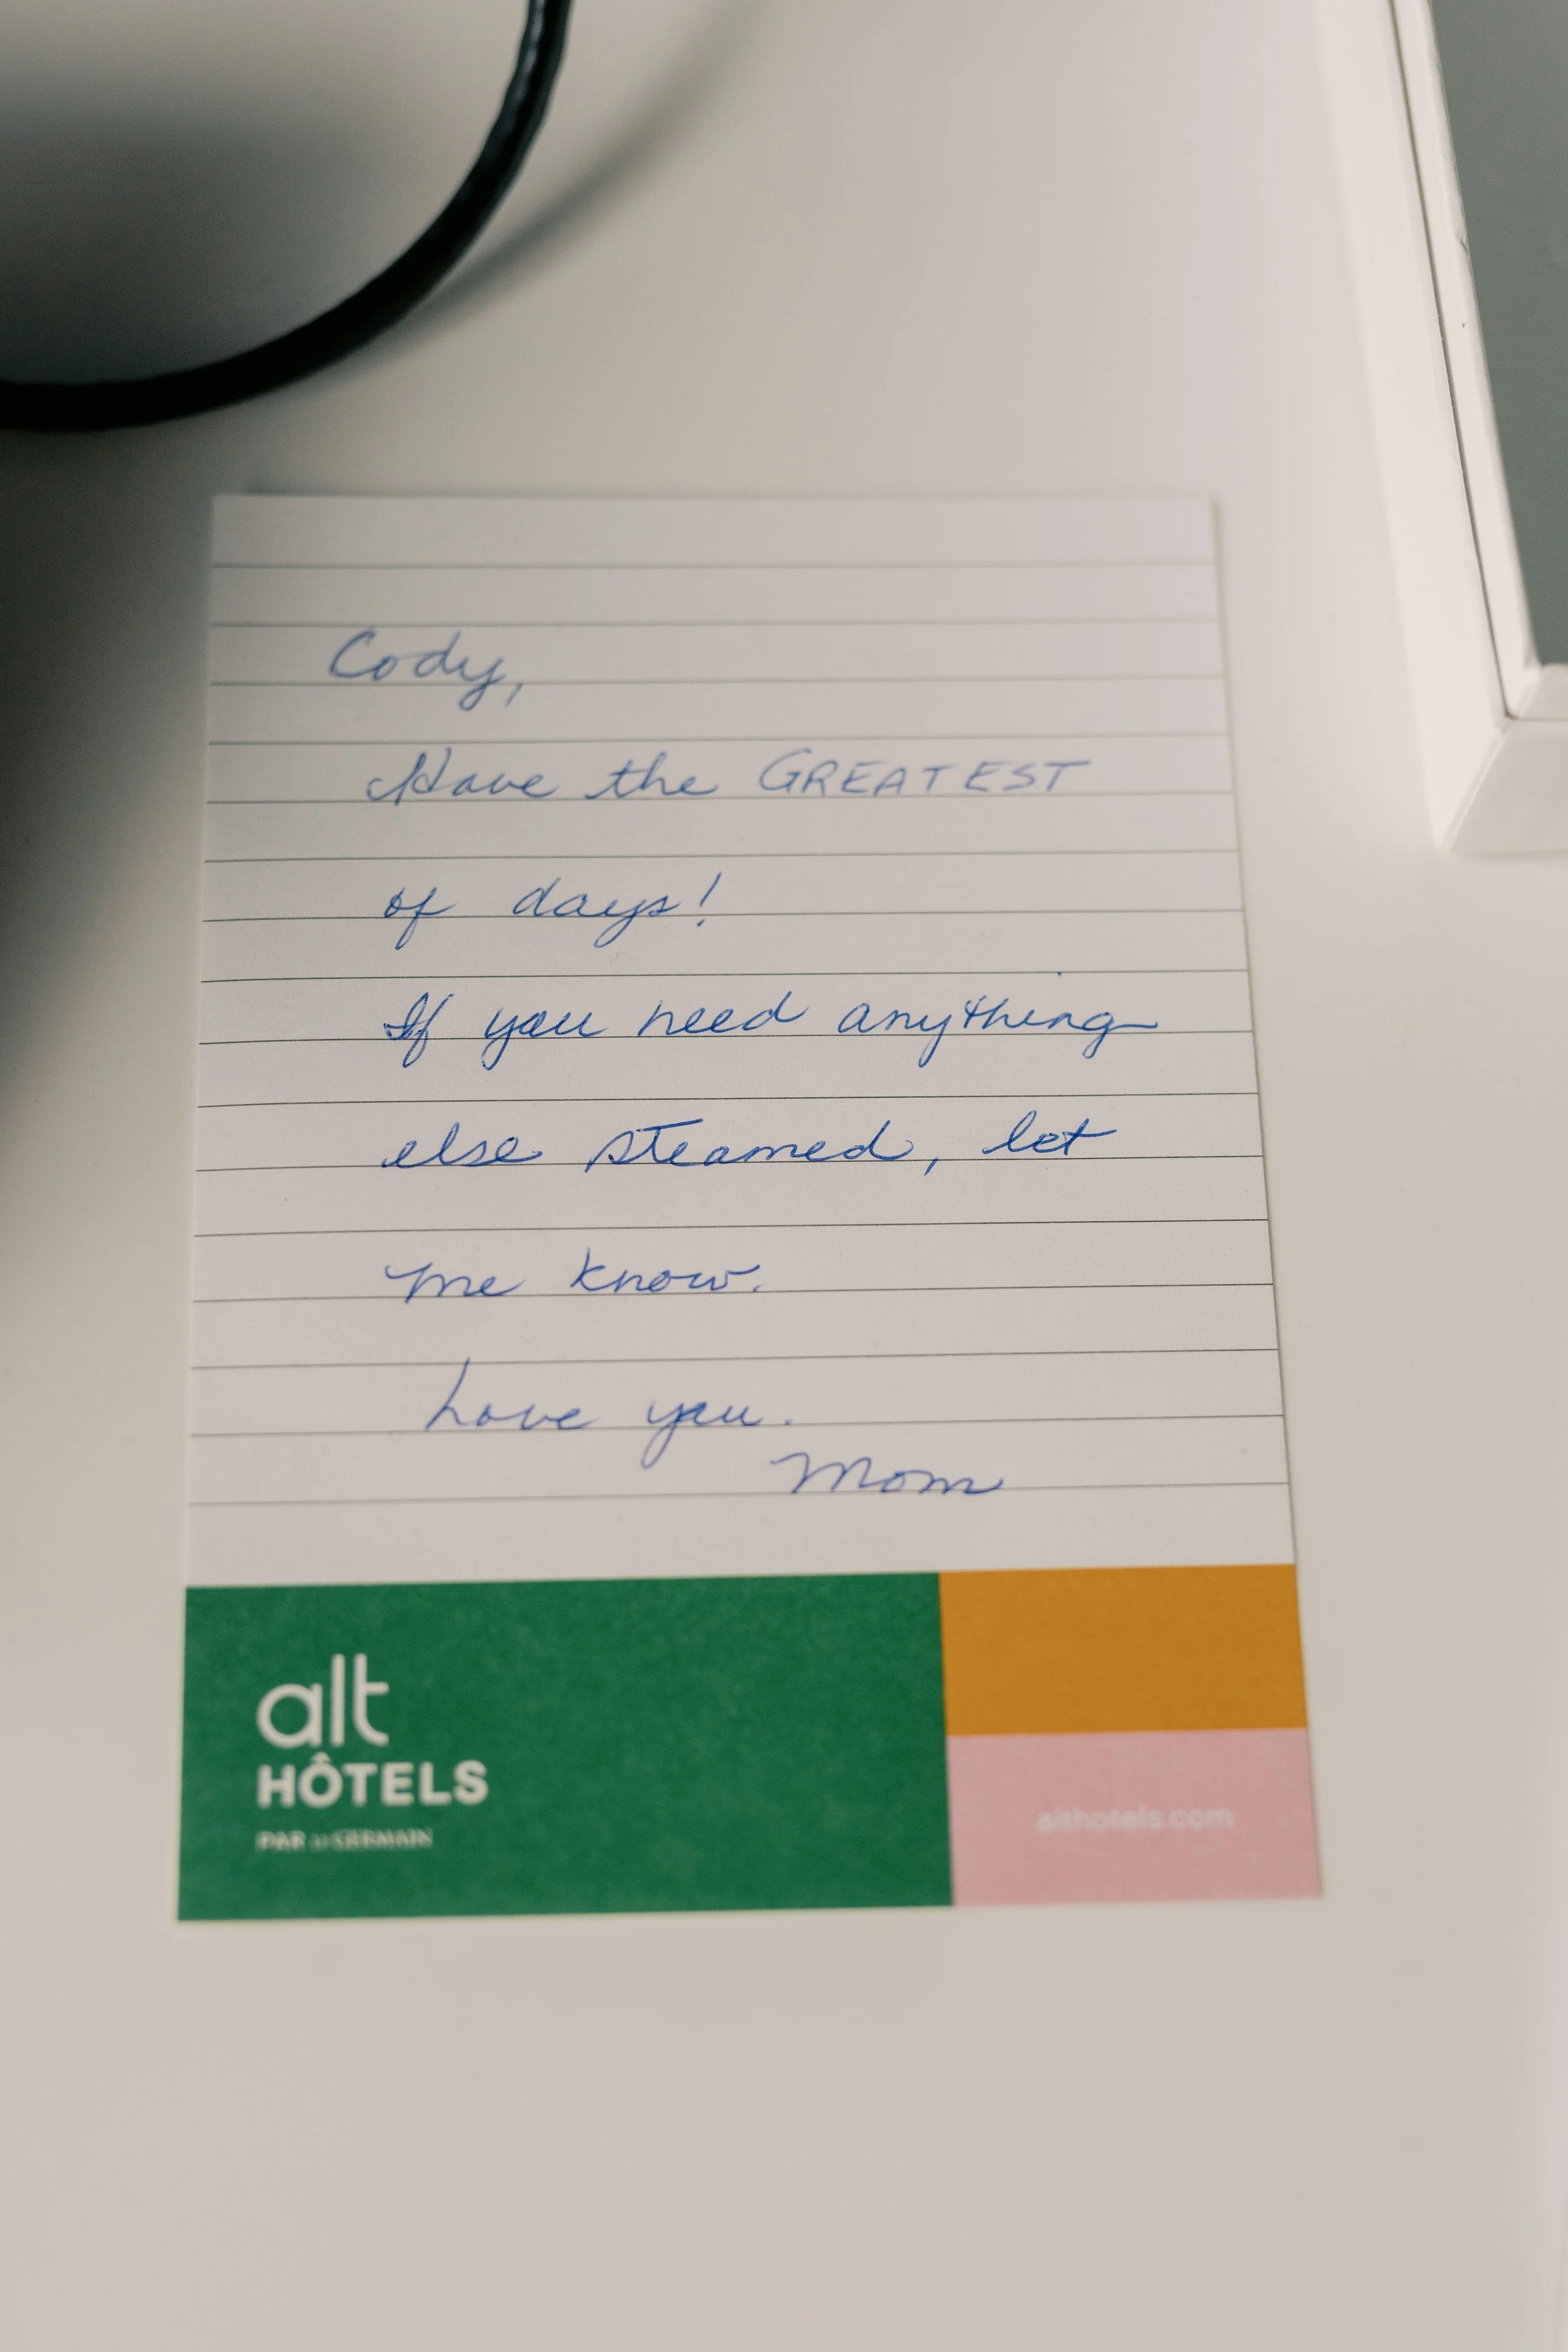 Cody,
Have the GREATEST
of days!
If you need anything
else steamed, let
me know.
Love you.
Mom
alt
HÔTELS
PAR LE GERMAIN
althotels.com